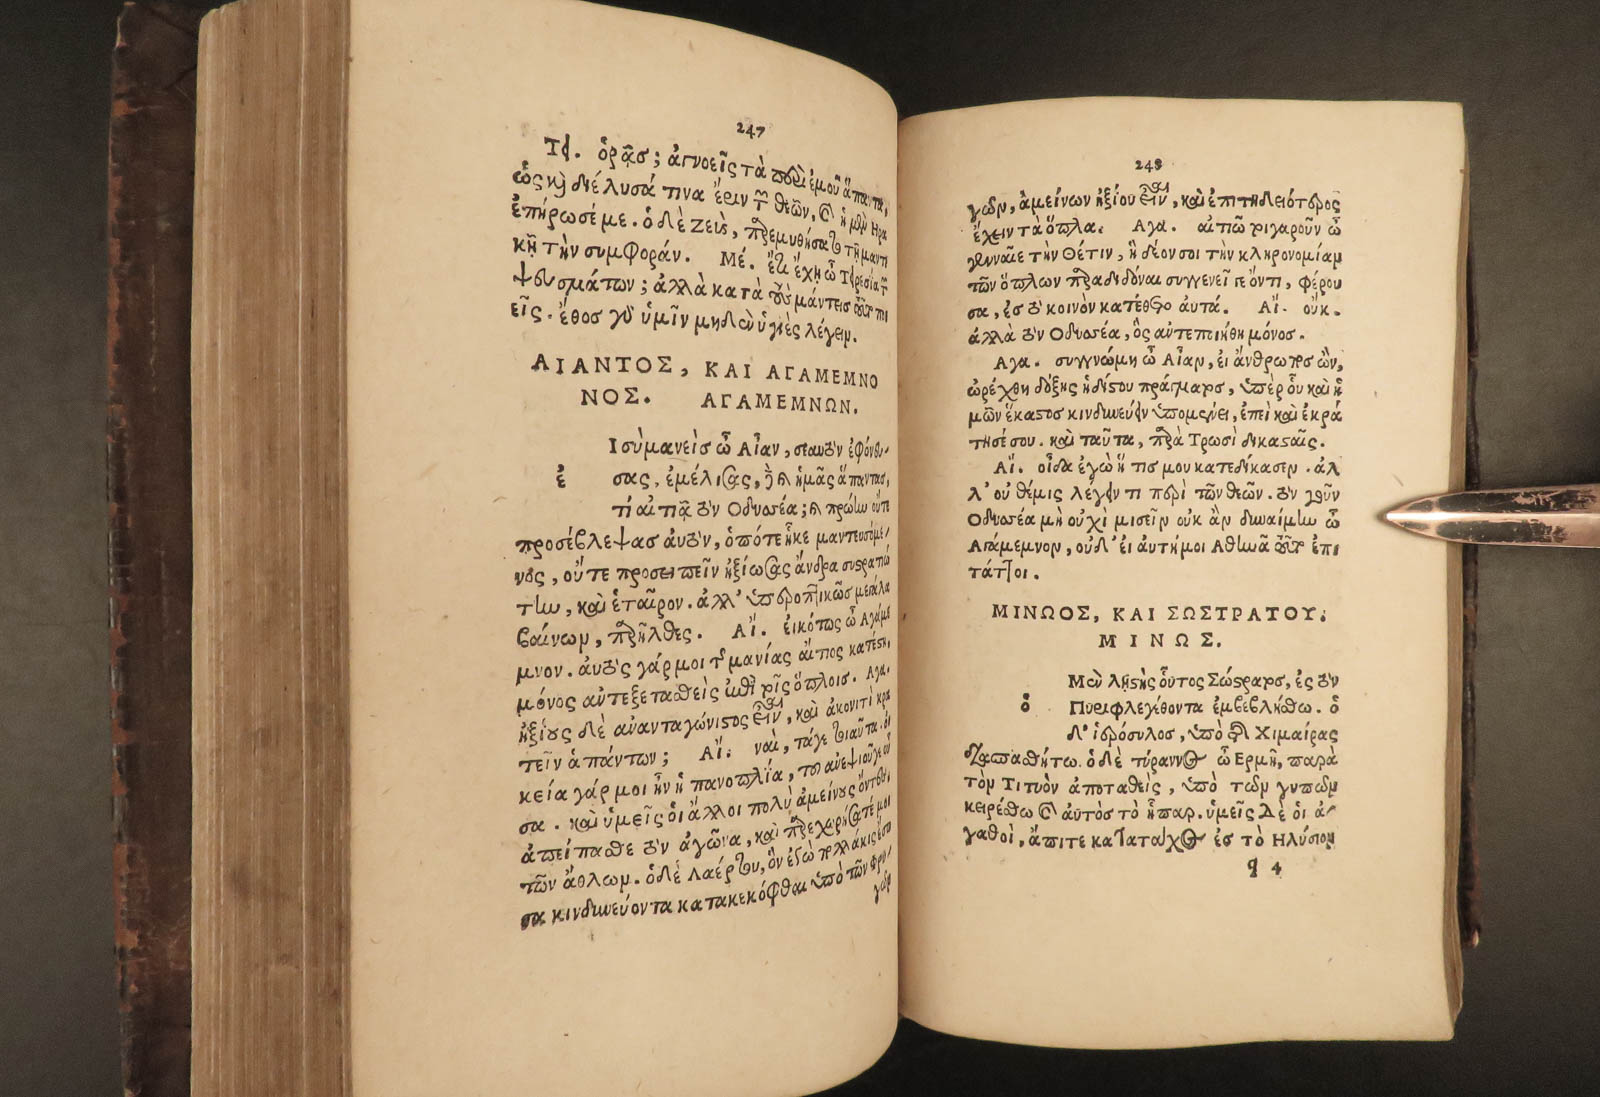 247
Τι. ὁρᾷς; ἀγνοεῖς τὰ περὶ ἐμοῦ ἅπαντα,
ὡς καὶ διέλυσά τινα ἔριν τῶν θεῶν, καὶ ἡ μὲν Ηρα
ἐπήρωσέ με. ὁ δὲ Ζεὺς, παρεμυθήσατο τῇ μαντι
κῇ τὴν συμφοράν. Μέ. ἔτι ἔχῃ ὦ Τειρεσία τῶν
ψευσμάτων; ἀλλὰ κατὰ τοὺς μάντεις τοῦτο ποι
εῖς. ἔθος γὸ ὑμῖν μηδὲν ὑγιὲς λέγειν.
ΑΙΑΝΤΟΣ, ΚΑΙ ΑΓΑΜΕΜΝΟ
ΝΟΣ. ΑΓΑΜΕΜΝΩΝ.
Ι σὺ μανεὶς ὦ Αἶαν, σεαυτὸν ἐφόνευ-
ἐ σας, ἐμέλησας, δὲ καὶ ἡμᾶς ἅπαντας,
τί αἰτιᾷ τὸν Οδυσσέα; καὶ πρώην οὔτε
προσέβλεψας αὐτὸν, ὁπότε ἧκε μαντευσόμε-
νος, οὔτε προσειπεῖν ἠξίωσας ἄνδρα συστρατιώ
την, καὶ ἑταῖρον. ἀλλ' ὑπεροπτικῶς μεγάλα
βαίνων, παρῆλθες. ΑΪ. εἰκότως ὦ Αγάμε
μνον. αὐτὸς γάρ μοι τῆς μανίας αἴτιος κατέστη,
μόνος ἀντεξετασθεὶς ἐπὶ τοῖς ὅπλοις. Αγα.
ἠξίους δὲ ἀνανταγώνιστος εἶναι, καὶ ἀκονιτὶ κρα
τεῖν ἁπάντων; ΑΪ. ναὶ, τάγε τοιαῦτα. οἰ
κεία γάρ μοι ἦν ἡ πανοπλία, τοῦ ἀνεψιοῦ γε οὖ
σα. καὶ ὑμεῖς οἱ ἄλλοι πολὺ ἀμείνους ὄντες,
ἀπείπασθε τὸν ἀγῶνα, καὶ παρεχωρήσατέ μοι
τῶν ἄθλων. ὁ δὲ Λαέρτου, ὃν ἐγὼ πολλάκις ἔσω
σα κινδυνεύοντα κατακεκόφθαι ὑπὸ τῶν φρυ-
γῶν
248
γῶν, ἀμείνων ἠξίου εἶναι, καὶ ἐπιτηδειότερος
ἔχειν τὰ ὅπλα. Αγα. αἰτιῶ τιγαροῦν ὦ
γενναῖε τὴν Θέτιν, ἣ δέον σοι τὴν κληρονομίαν
τῶν ὅπλων παραδιδόναι συγγενεῖ γε ὄντι, φέρου
σα, ἐς τὸ κοινὸν κατέθετο αὐτά. ΑΪ. οὔκ.
ἀλλὰ τὸν Οδυσσέα, ὃς ἀντεποιήθη μόνος.
Αγα. συγγνώμη ὦ Αἶαν, εἰ ἄνθρωπος ὢν,
ὠρέχθη δόξης ἡδίστου πράγματος, ὑπὲρ οὗ καὶ ἡ
μῶν ἕκαστος κινδυνεύειν ὑπομένει, ἐπεὶ καὶ ἐκρά
τησέ σου. καὶ ταῦτα, παρὰ Τρωσὶ δικασταῖς.
ΑΪ. οἶδα ἐγὼ ἥ τις μου κατεδίκασεν. ἀλ
λ' οὐ θέμις λέγειν τι περὶ τῶν θεῶν. τὸν γοῦν
Οδυσσέα μὴ οὐχὶ μισεῖν οὐκ ἂν δυναίμην ὦ
Αγάμεμνον, οὐδ' εἰ αὐτή μοι Αθηνᾶ τοῦτο ἐπι
τάττοι.
ΜΙΝΩΟΣ, ΚΑΙ ΣΩΣΤΡΑΤΟΥ.
ΜΙΝΩΣ.
Μὲν λῃστὴς οὗτος Σώστρατος, ἐς τὸν
ὁ Πυριφλεγέθοντα ἐμβεβλήσθω. ὁ
δ' ἱερόσυλος, ὑπὸ τῆς Χιμαίρας
διασπασθήτω. ὁ δὲ τύραννος ὦ Ερμῆ, παρὰ
τὸν Τιτυὸν ἀποταθεὶς, ὑπὸ τῶν γυπῶν
κειρέσθω καὶ αὐτὸς τὸ ἧπαρ. ὑμεῖς Δὲ οἱ ἀ-
γαθοὶ, ἄπιτε κατὰ τάχος ἐς τὸ Ηλύσιον
q 4